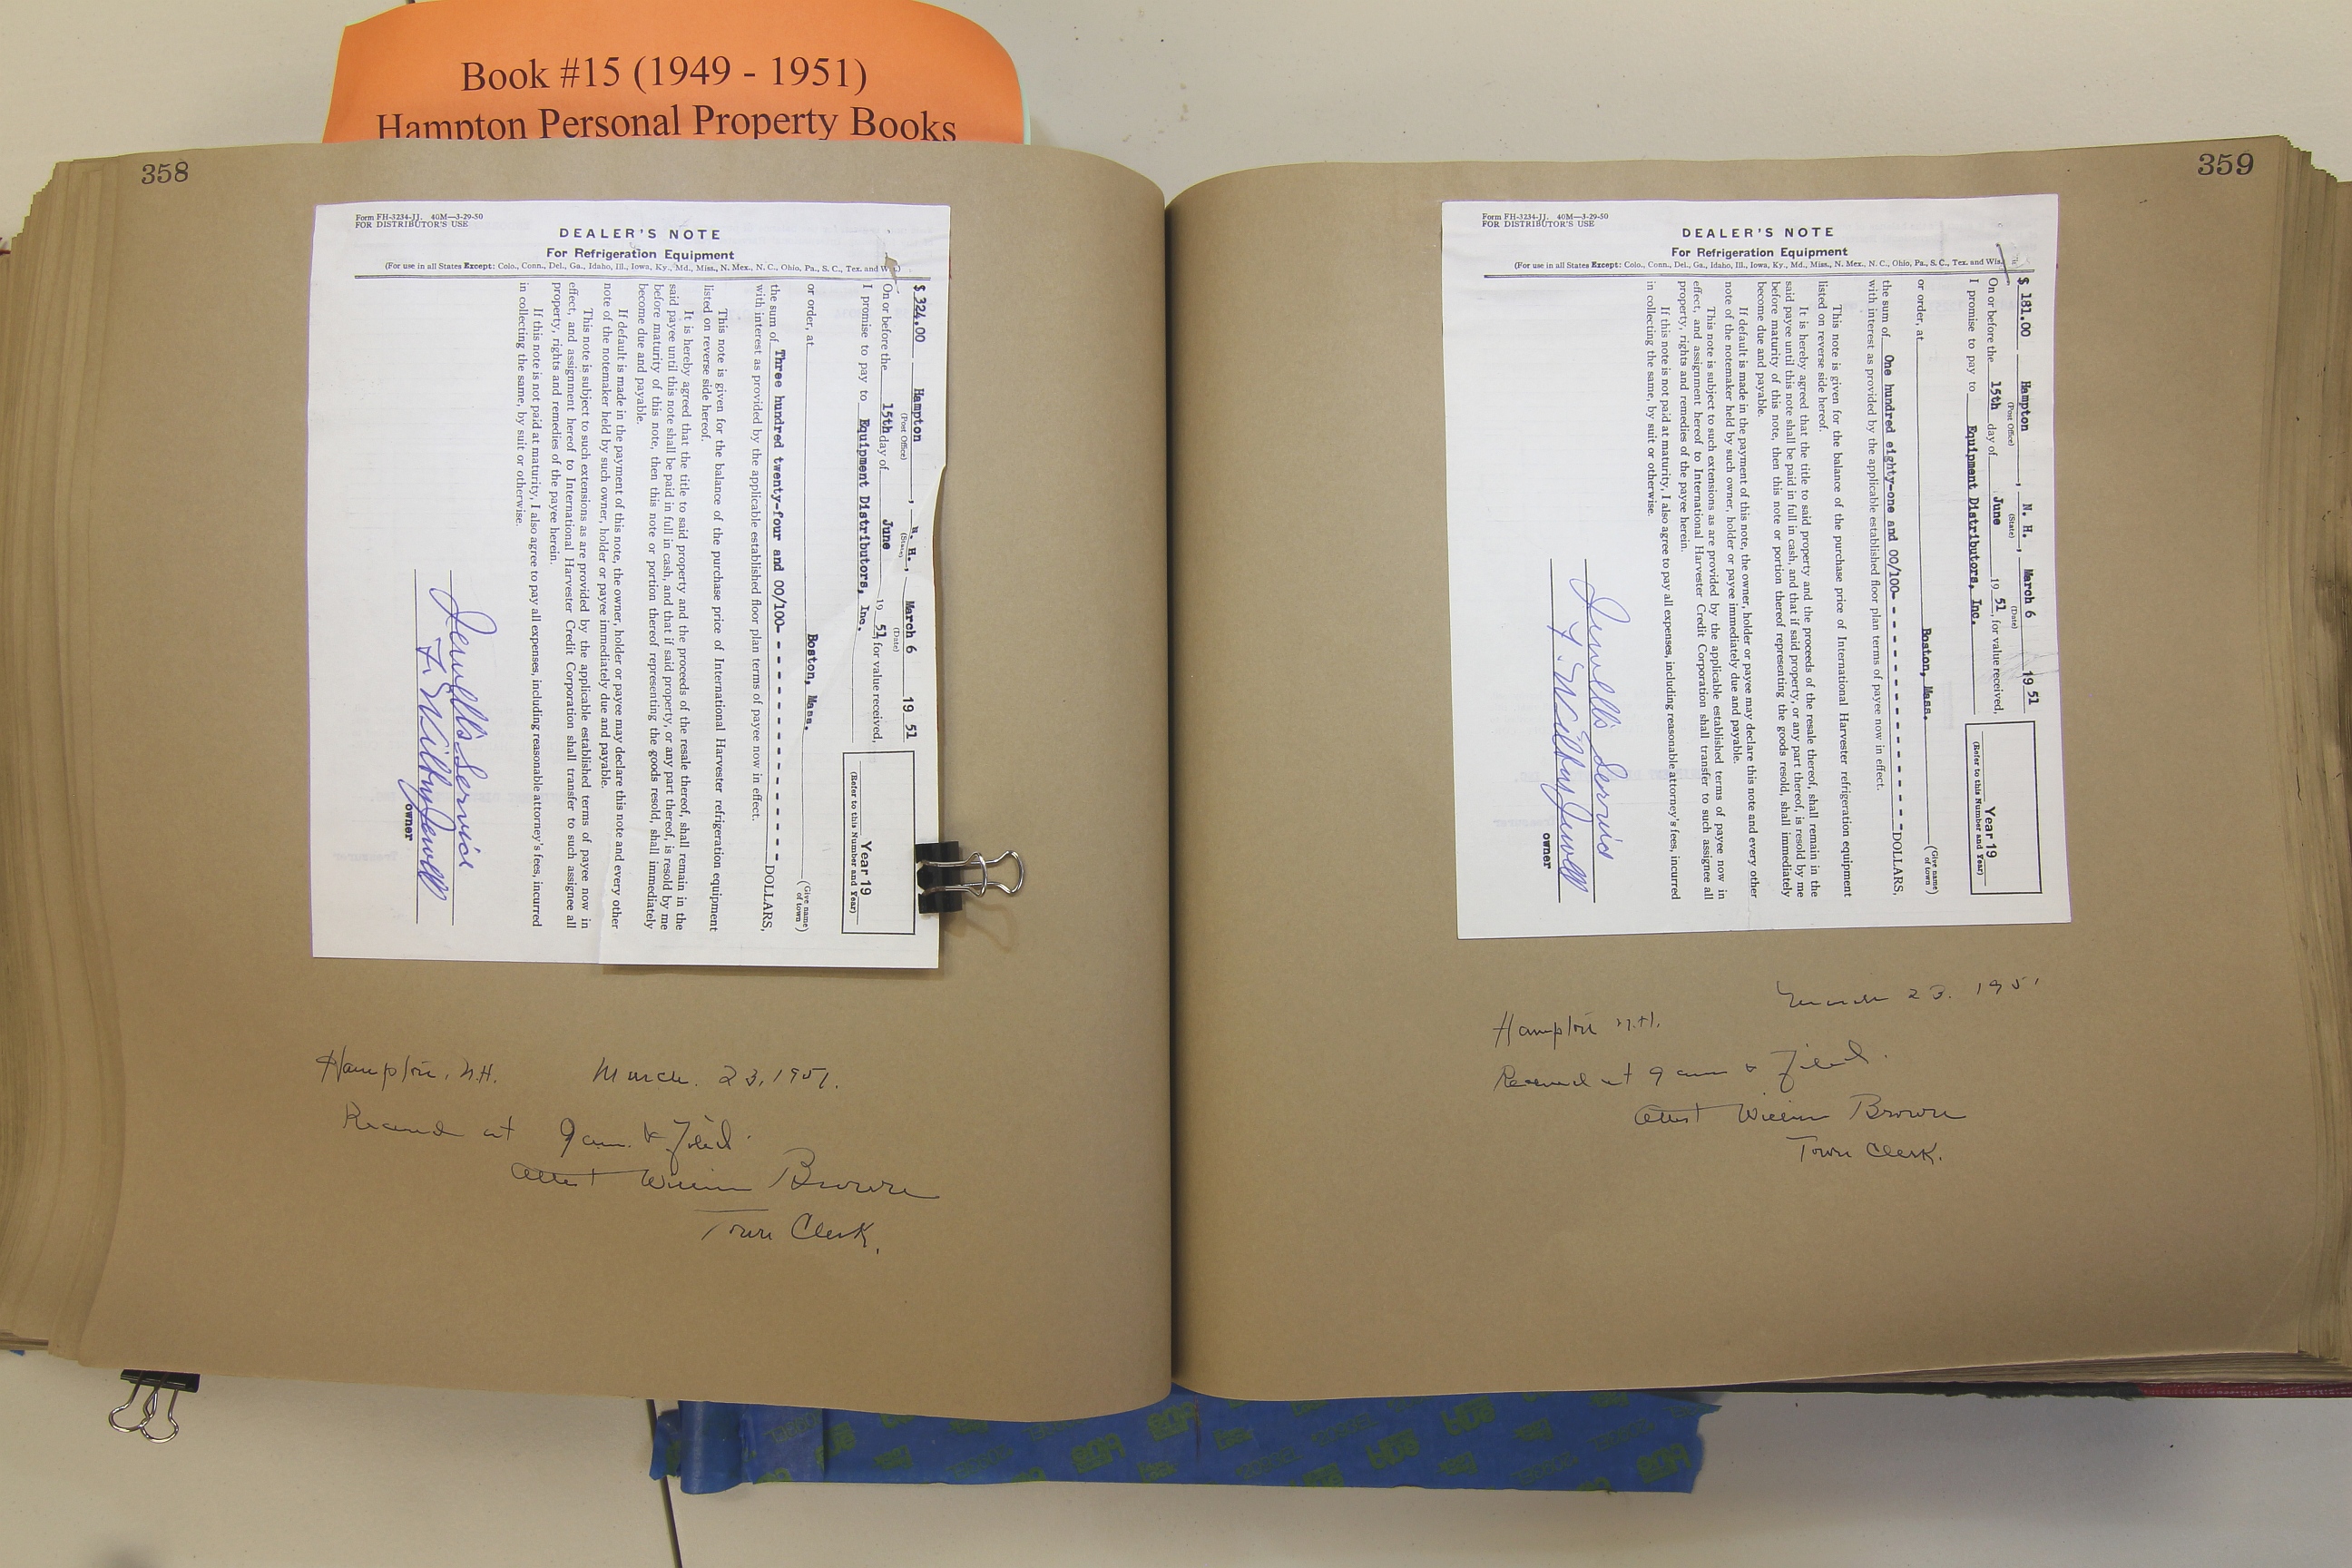 Book #15 (1949 - 1951)
Hampton Personal Property Books
358
Form FH-3234-JJ. 40M—3-29-50
FOR DISTRIBUTOR'S USE
DEALER'S NOTE
For Refrigeration Equipment
(For use in all States Except: Colo., Conn., Del., Ga., Idaho, Ill., Iowa, Ky., Md., Miss., N. Mex., N. C., Ohio, Pa., S. C., Tex. and W
$ 324.00 Hampton, N. H., March 6 19 51
(Post Office) (State) (Date)
On or before the 15th day of June 19 51, for value received,
I promise to pay to Equipment Distributors, Inc.
Year 19
(Refer to this Number and Year)
or order, at Boston, Mass. (Give name of town)
the sum of Three hundred twenty-four and 00/100- - - - - - - - - - DOLLARS,
with interest as provided by the applicable established floor plan terms of payee now in effect.
This note is given for the balance of the purchase price of International Harvester refrigeration equipment
listed on reverse side hereof.
It is hereby agreed that the title to said property and the proceeds of the resale thereof, shall remain in the
said payee until this note shall be paid in full in cash, and that if said property, or any part thereof, is resold by me
before maturity of this note, then this note or portion thereof representing the goods resold, shall immediately
become due and payable.
If default is made in the payment of this note, the owner, holder or payee may declare this note and every other
note of the notemaker held by such owner, holder or payee immediately due and payable.
This note is subject to such extensions as are provided by the applicable established terms of payee now in
effect, and assignment hereof to International Harvester Credit Corporation shall transfer to such assignee all
property, rights and remedies of the payee herein.
If this note is not paid at maturity, I also agree to pay all expenses, including reasonable attorney's fees, incurred
in collecting the same, by suit or otherwise.
Jewell's Service
F. Wilby Jewell
owner
Hampton, N.H. March. 23, 1951.
Received at 9 am. & Filed.
Attest William Brown
Town Clerk.
359
Form FH-3234-JJ. 40M—3-29-50
FOR DISTRIBUTOR'S USE
DEALER'S NOTE
For Refrigeration Equipment
(For use in all States Except: Colo., Conn., Del., Ga., Idaho, Ill., Iowa, Ky., Md., Miss., N. Mex., N. C., Ohio, Pa., S. C., Tex. and Wis.)
$ 181.00 Hampton, N. H., March 6 19 51
(Post Office) (State) (Date)
On or before the 15th day of June 19 51, for value received,
I promise to pay to Equipment Distributors, Inc.
Year 19
(Refer to this Number and Year)
or order, at Boston, Mass. (Give name of town)
the sum of One hundred eighty-one and 00/100- - - - - - - - - - DOLLARS,
with interest as provided by the applicable established floor plan terms of payee now in effect.
This note is given for the balance of the purchase price of International Harvester refrigeration equipment
listed on reverse side hereof.
It is hereby agreed that the title to said property and the proceeds of the resale thereof, shall remain in the
said payee until this note shall be paid in full in cash, and that if said property, or any part thereof, is resold by me
before maturity of this note, then this note or portion thereof representing the goods resold, shall immediately
become due and payable.
If default is made in the payment of this note, the owner, holder or payee may declare this note and every other
note of the notemaker held by such owner, holder or payee immediately due and payable.
This note is subject to such extensions as are provided by the applicable established terms of payee now in
effect, and assignment hereof to International Harvester Credit Corporation shall transfer to such assignee all
property, rights and remedies of the payee herein.
If this note is not paid at maturity, I also agree to pay all expenses, including reasonable attorney's fees, incurred
in collecting the same, by suit or otherwise.
Jewell's Service
F. Wilby Jewell
owner
March 23. 1951
Hampton N.H.
Received at 9 am & Filed.
Attest William Brown
Town Clerk.